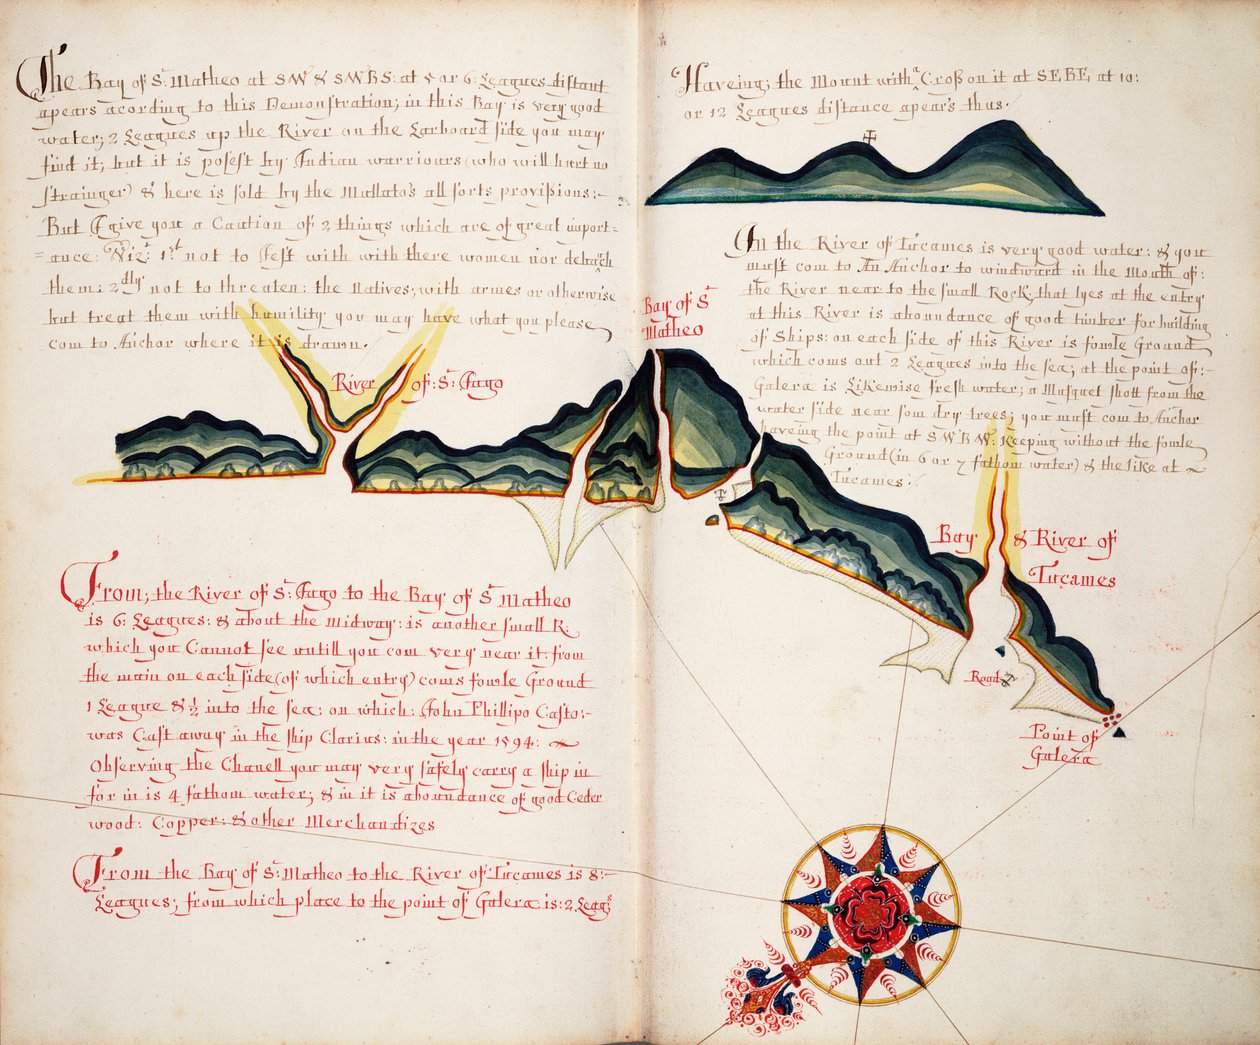 The Bay of St: Matheo at SW & SWBS: at 5 or 6: Leagues distant
apears acording to this Demonstration; in this Bay is very good
water; 2 Leagues up the River on the Larboard side you may
find it; but it is posest by Indian warriours (who will hurt no
strainger) & here is sold by the Mullato's all sorts provisions:-
But I give you a Caution of 2 things which are of great import-
=ance: Viz:t 1st not to Jest with with there women nor debauch
them: 2dly not to threaten: the Natives; with armes or otherwise
but treat them with humility you may have what you please
com to Anchor where it is drawn.
River of: St: Jago
From; the River of St: Jago to the Bay of St Matheo
is 6: Leagues: & about the midway: is another small R:
which you Cannot see untill you com very near it. from
the main on each side (of which entry) coms fowle Ground
1 League & ½ into the sea: on which: John Phillipo Casto:-
was Cast away in the ship Clarius: in the year 1594:
Observing the Chanell you may very safely carry a ship in
for in is 4 fathom water; & in it is aboundance of good Ceder
wood: Copper: & other Merchandizes
From the Bay of St: Matheo to the River of Tucames is 8:-
Leagues; from which place to the point of Galera is: 2 Leags
Haveing; the Mount with a Cross on it at SEBE, at 10:
or 12 Leagues distance apears thus.
Bay of St
Matheo
In the River of Tucames is very good water: & you
must com to An Anchor to windward in the Mouth of:
the River near to the small Rock, that lyes at the entry
at this River is aboundance of good timber for building
of Ships: on each side of this River is fowle Ground
which coms out 2 Leagues into the sea; at the point of:-
Galera is Likewise fresh water; a Musquet shott from the
water side near som dry trees; you must com to Anchor
haveing the point at SWBW: Keeping without the fowle
Ground (in 6 or 7 fathom water) & the like at ~
Tucames.
Bay & River of
Tucames
Road
Point of
Galera